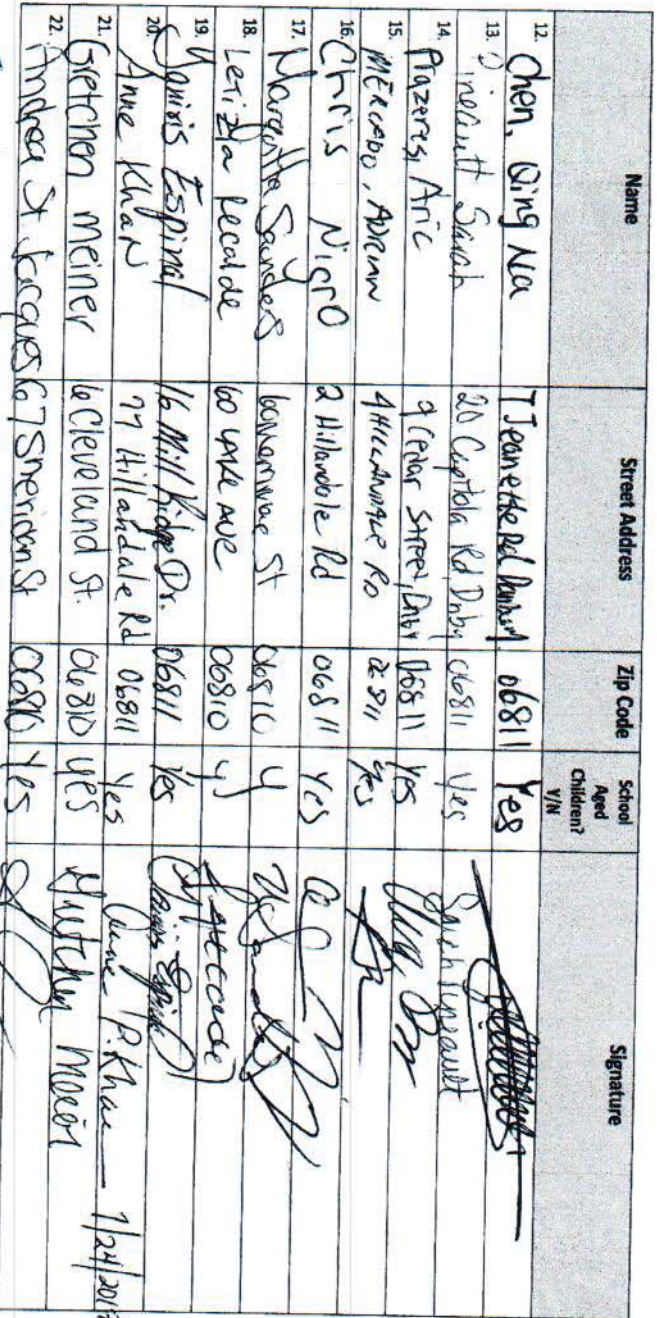 Name Street Address Zip Code School Aged Children? Y/N Signature
12. Chen, Qing Na 7 Jeanette Rd Danbury 06811 Yes
13. Pineault Sarah 20 Capitola Rd Dnby 06811 Yes Sarah Pineault
14. Prazeres, Aric 9 Cedar Street, Dnby 06811 Yes
15. MERCADO, ADRIAN 4 HILLANDALE RD 06811 yes
16. Chris Nigro 2 Hillandale Rd 06811 Yes
17. Margutta Sanders St 06810 y
18. Letizia Recalde 60 Lake Ave 06810 y
19. Yaniris Espinal 16 Mill Ridge Dr. 06811 Yes Yaniris Espinal
20. Anne Khan 77 Hillandale Rd 06811 Yes Anne P. Khan
21. Gretchen Meiner 6 Cleveland St. 06810 yes Gretchen
22. Andrea St. Jacques 67 Sheridan St 06810 Yes